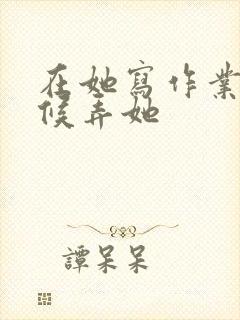 在她寫作業
候弄她
譚呆呆